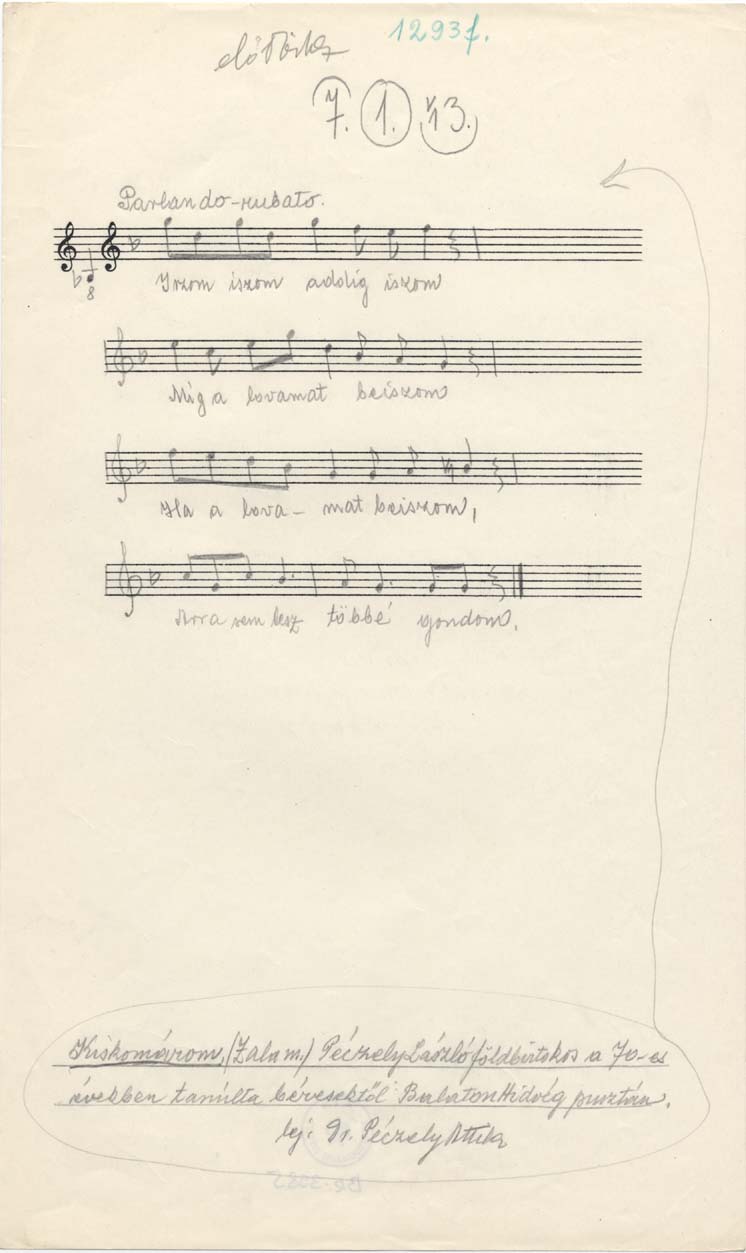 1293f.
7. 1. 13.
Parlando-rubato.
8
Iszom iszom addig iszom
Mig a lovamat beiszom
Ha a lova- mat beiszom,
Arra sem lesz többé gondom.
Kiskomárom, (Zala m.) Péczely László földbirtokos a 70-es
években tanúlta béresektől Balaton Hidvég pusztán.
lej: Dr. Péczely Attila